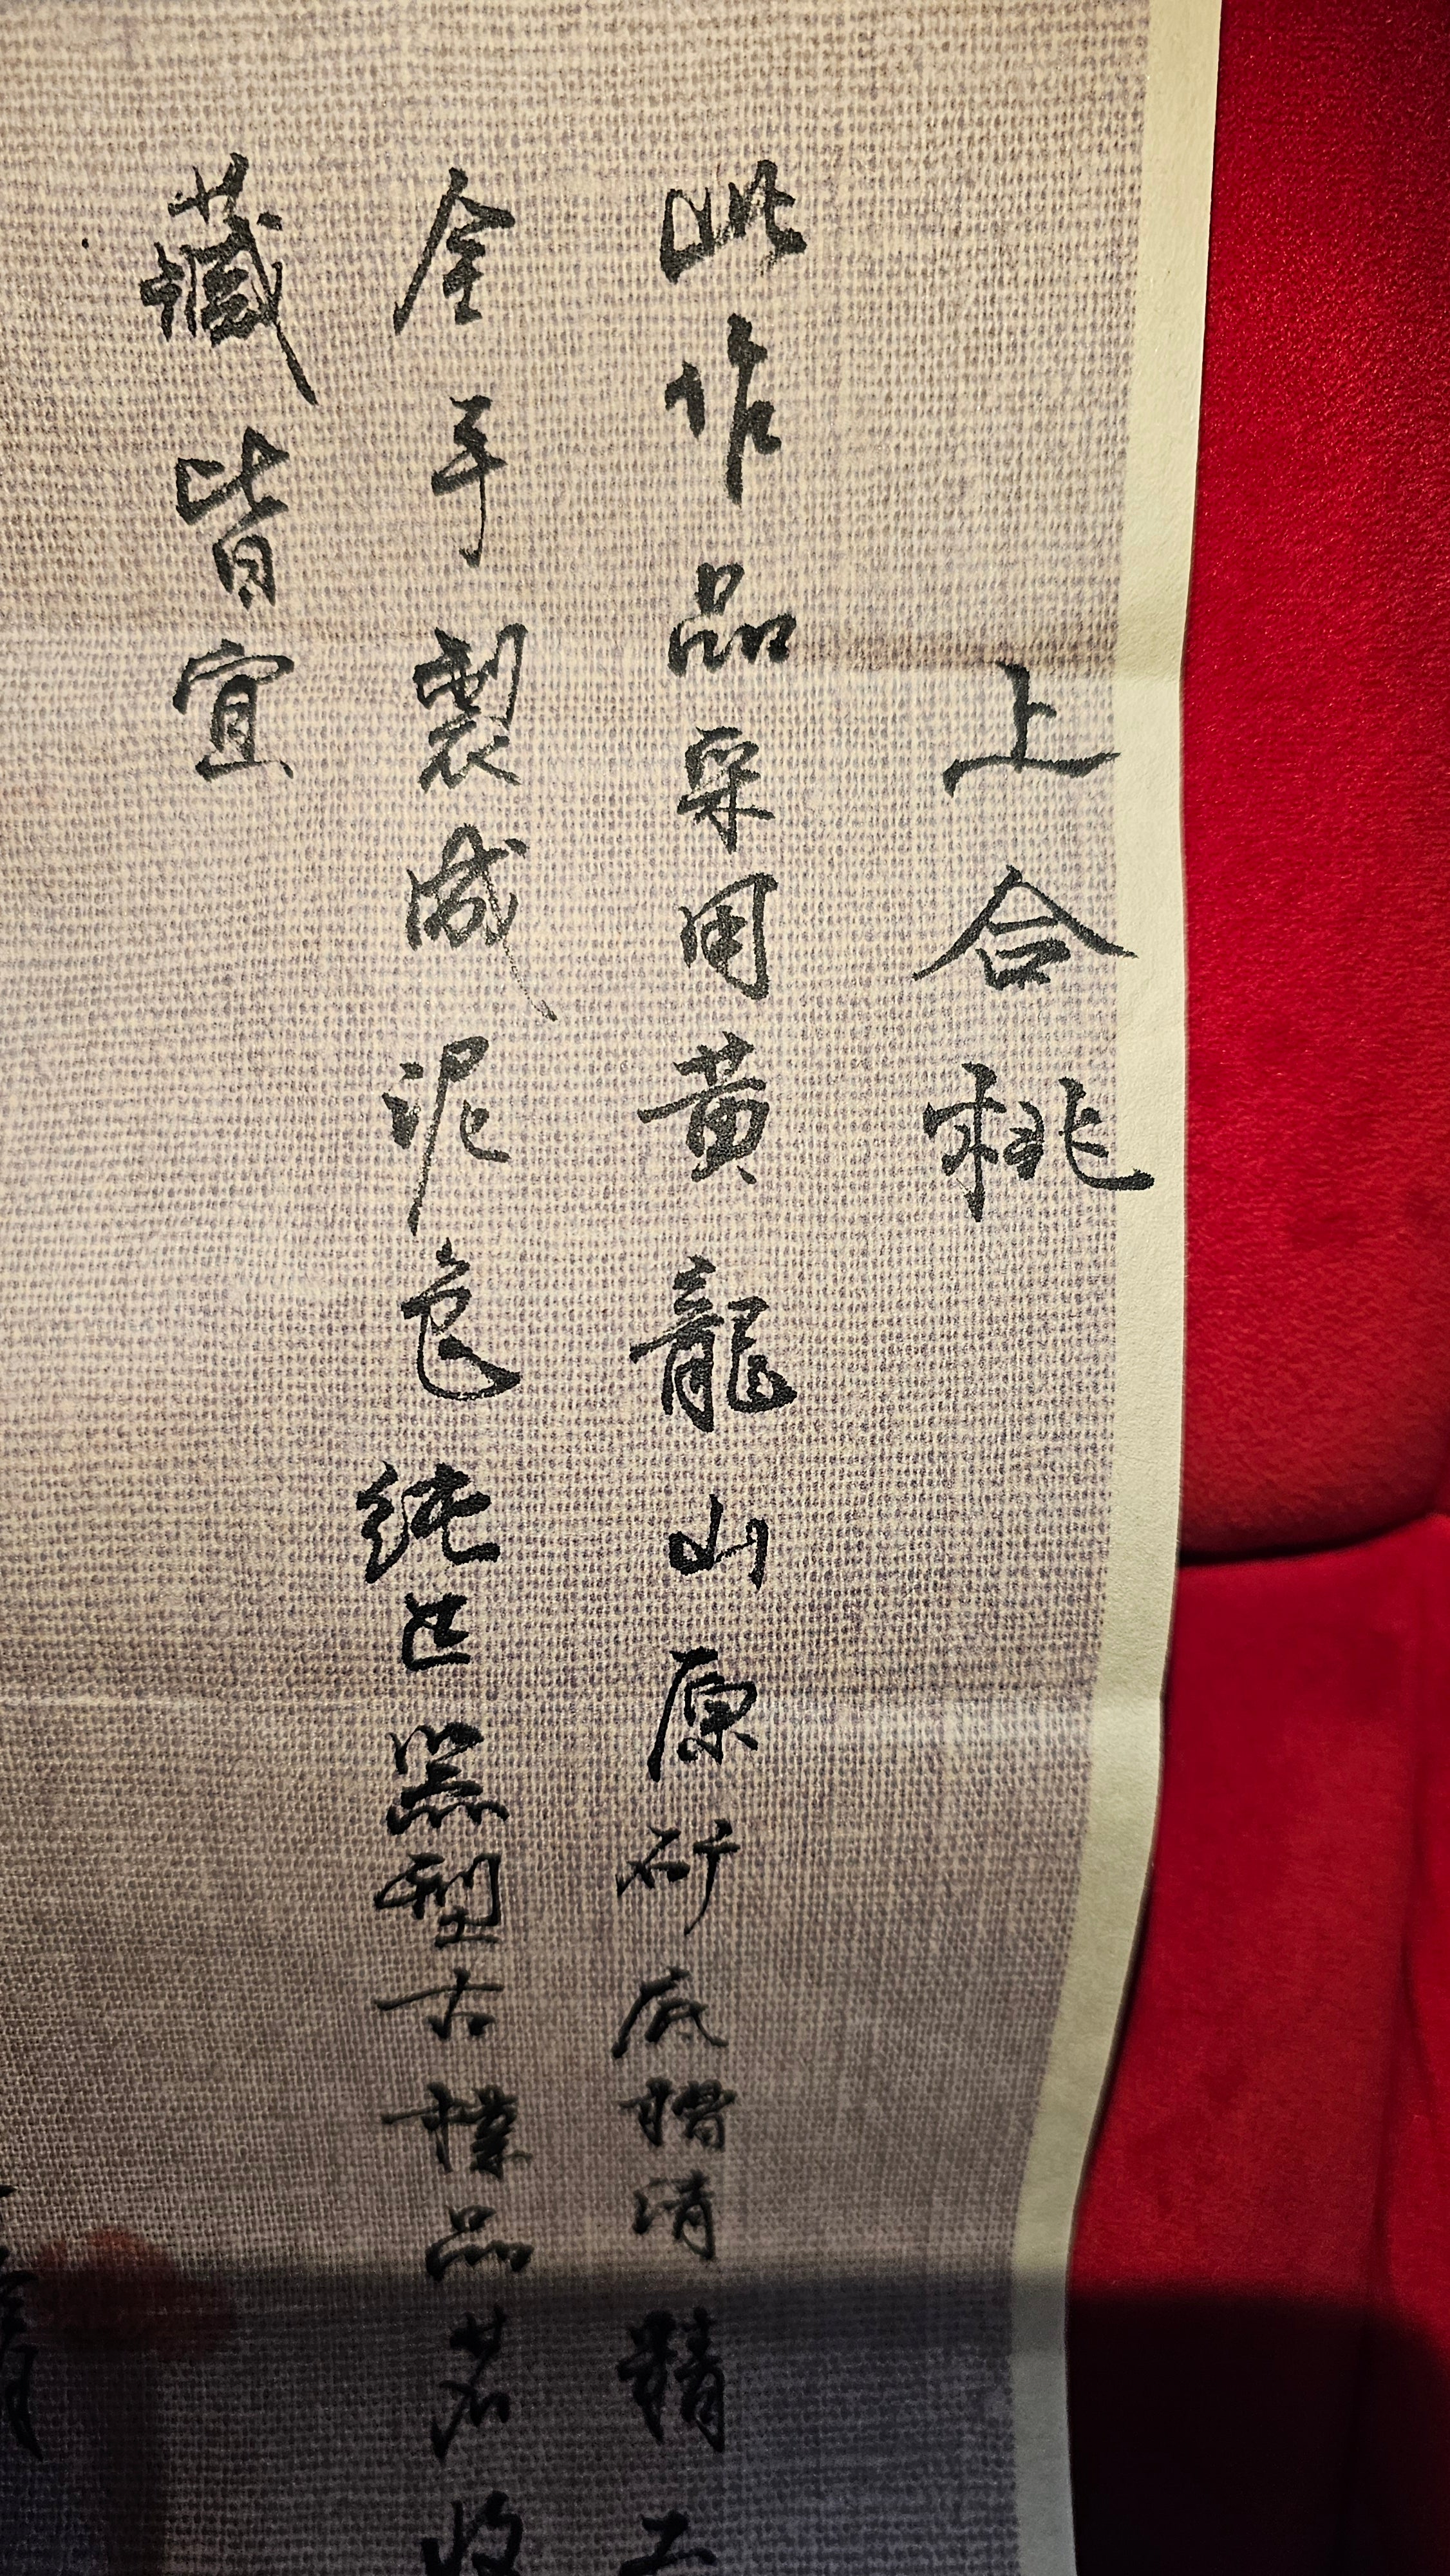 上合桃
此作品采用黄龍山原矿底槽清精工
全手製成泥色纯正器型古樸品茗收
藏皆宜